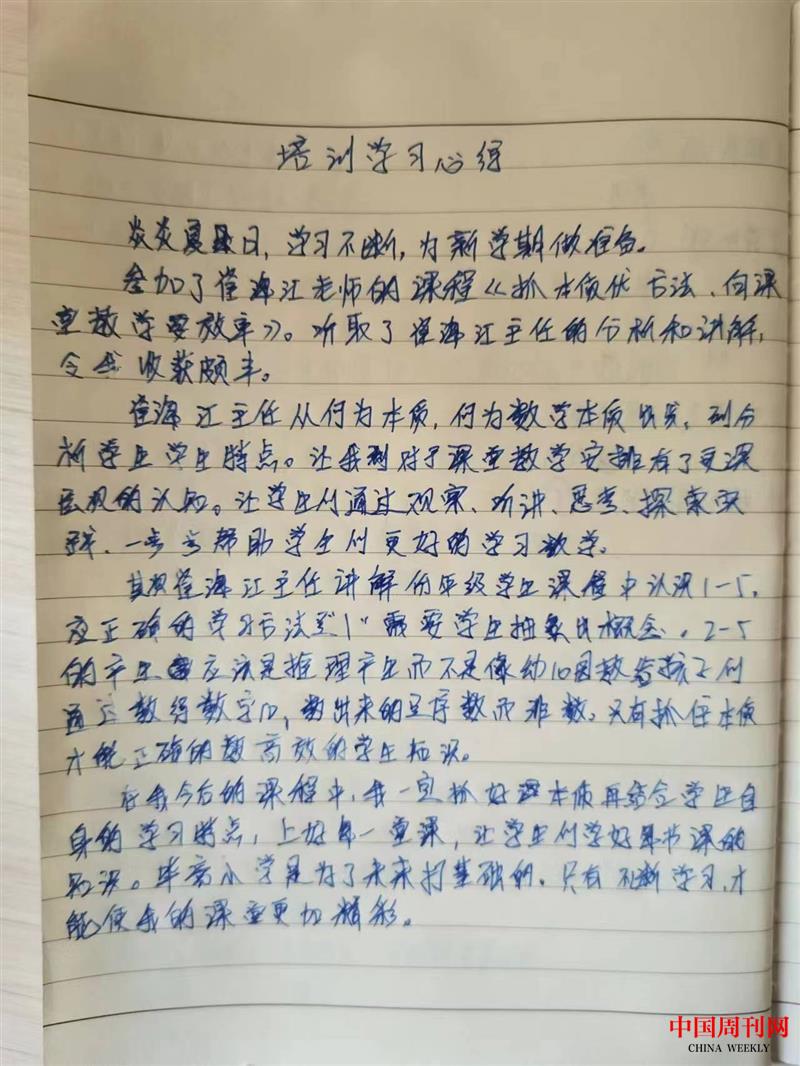 培训学习心得
炎炎夏日，学习不断，为新学期做准备。
参加了崔海江老师的课程《抓本质优方法、向课
堂教学要效率》。听取了崔海江主任的分析和讲解，
令我收获颇丰。
崔海江主任从何为本质，何为数学本质出发，到分
析学生学生特点。让我到对于课堂教学安排有了更深
的认知。让学生们通过观察、听讲、思考、探索实
践、一步步帮助学生们更好的学习数学。
崔海江主任讲解低年级学生课程中认识1-5，
应正确的学习方法是"1"需要学生抽象出概念。2-5
的产生应该是推理产生而不是像幼儿园教孩子们
通过数得数字，数出来的是序数而非数。只有抓住本质
才能正确的教高效的学生知识。
在我今后的课程中，我一定抓好课本质再结合学生自
身的学习特点，上好每一堂课，让学生们学好每节课的
知识。毕竟小学是为了未来打基础的，只有不断学习，才
能使我的课堂更加精彩。
中国周刊网
CHINA WEEKLY